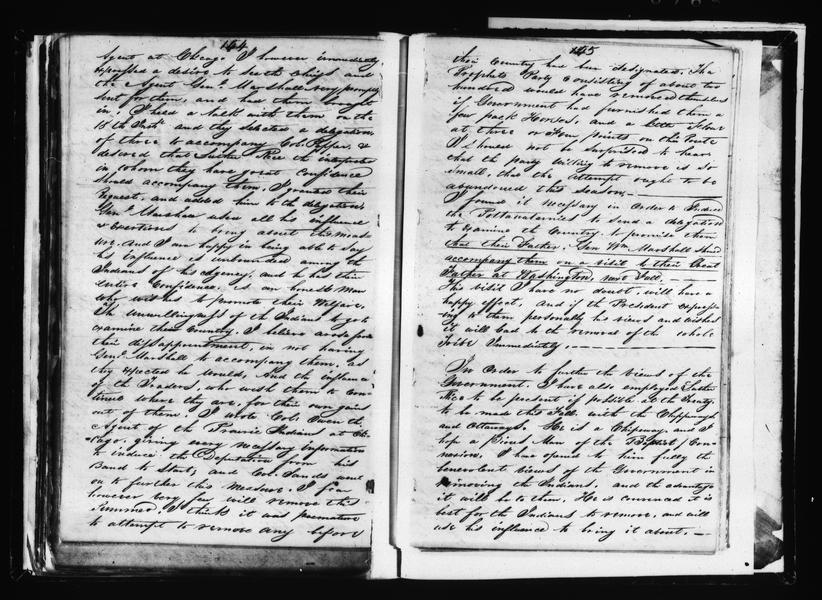 144
Agent at Chicago I however immediately
expressed a desire to see the Chiefs and
the Agent Genl. Marshall very promptly
sent for them, and had them brought
in. I held a talk with them on the
18th Inst. and they selected a delegation
of three to accompany Col. Pepper &
desired that Luther Rice the interpreter
in whom they have great Confidence
should accompany them. I granted their
Request, and added him to the delegation
Genl. Marshall uses all his influence
& Exertions to bring about this meas
ure. And I am happy in being able to say
his Influence is unbounded among the
Indians of his Agency, and he has their
entire Confidence, is an honest Man
who wishes to promote their Welfare.
The unwillingness of the Indians to go to
examine their Country, I believe arose from
their disappointment, in not having
Genl. Marshall to accompany them, as
they expected he would. And the influence
of the Traders, who wish them to con-
tinue where they are, for their own gains
out of them. I wrote Col. Owen the
Agent of the Prairie Indians at Chi-
cago, giving every necessary information
to induce the Deputation from his
Band to Start, and Col. Sands went
on to further this Measure. I fear
however very few will remove this
Summer. I think it was premature
to attempt to remove any before
145
their Country had been designated. The
Prophets Party Consisting of about two
hundred would have removed themselves
if Government had furnished them a
few pack Horses, and a little Flour
at three or Four points on the Route
I should not be surprised to hear
that the party willing to remove is so
small, that the attempt ought to be
abandoned this season.
I found it necessary in order to Induce
the Pottawatamies to send a delegation
to examine the Country, to promise them
that their Father, Gen Wm Marshall should
accompany them on a visit to their Great
Father at Washington next Fall.
This visit I have no doubt, will have a
happy effect, And if the President express-
ing to them personally his views and wishes
it will lead to the removal of the whole
Tribe Immediately.
In Order to further the Views of the
Government. I have also employed Luther
Rice to be present if possible at the Treaty
to be made this Fall with the Chippeways
and Ottaways. He is a Chipeway and I
hope a Pious Man of the Baptist Con-
nexion. I have opened to him fully the
benevolent views of the Government in
removing the Indians, and the advantage
it will be to them. He is convinced it is
best for the Indians to remove, and will
use his influence to bring it about.